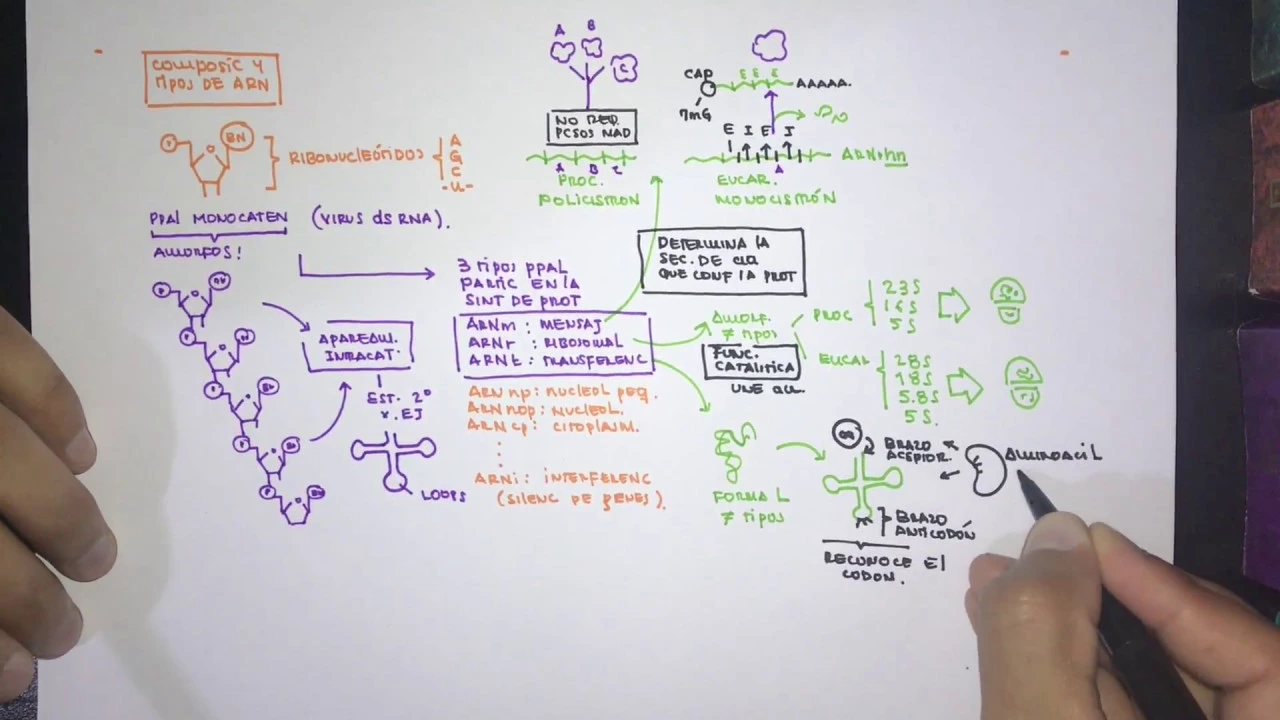 COMPOSIC Y
TIPOS DE ARN
P
BN
RIBONUCLEÓTIDOS
A
G
C
-U-
PPAL MONOCATEN (VIRUS dS RNA).
AMORFOS!
P
BN
P
BN
P
BN
P
BN
P
BN
APAREAM.
INTRACAT.
EST. 2º
X. EJ
LOOPS
3 TIPOS PPAL
PARTIC EN LA
SINT DE PROT
ARNm : MENSAJ
ARNr : RIBOSOMAL
ARNt : TRANSFERENC
ARN np : NUCLEOL PEQ.
ARN nop : NUCLEOL.
ARN cp : CITOPLASM.
ARNi : INTERFERENC
(SILENC DE GENES).
A
B
C
NO REQ.
PCSOS MAD
A B C
PROC.
POLICISTRON
CAP
E E E
AAAAA.
7mG
E I E I
ARN hn
A
EUCAR.
MONOCISTRÓN
DETERMINA LA
SEC. DE aa
QUE CONF LA PROT
AMORF.
≠ TIPOS
FUNC.
CATALITICA
UNE aa.
PROC
23S
16S
5S
EUCAR
28S
18S
5.8S
5S.
FORMA L
≠ TIPOS
aa
BRAZO
ACEPTOR.
AMINOACIL
BRAZO
ANTICODÓN
RECONOCE El
CODON.